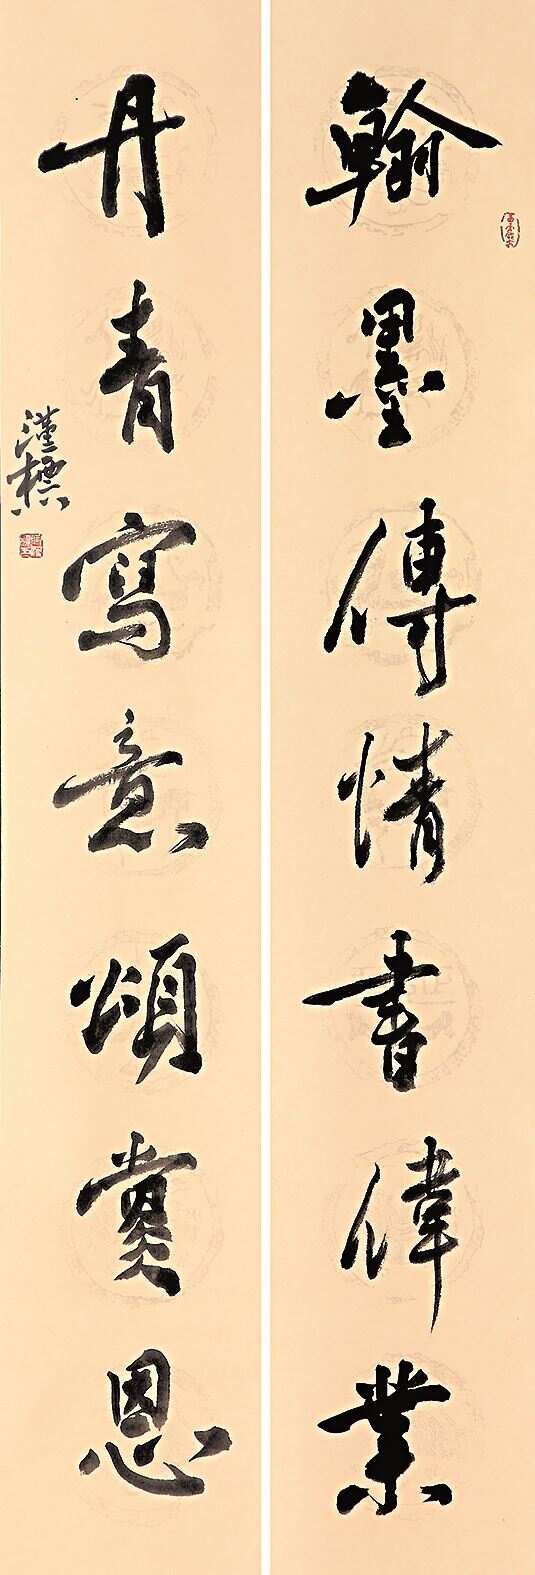 翰墨傳情書偉業
丹青寫意頌黨恩
漢標